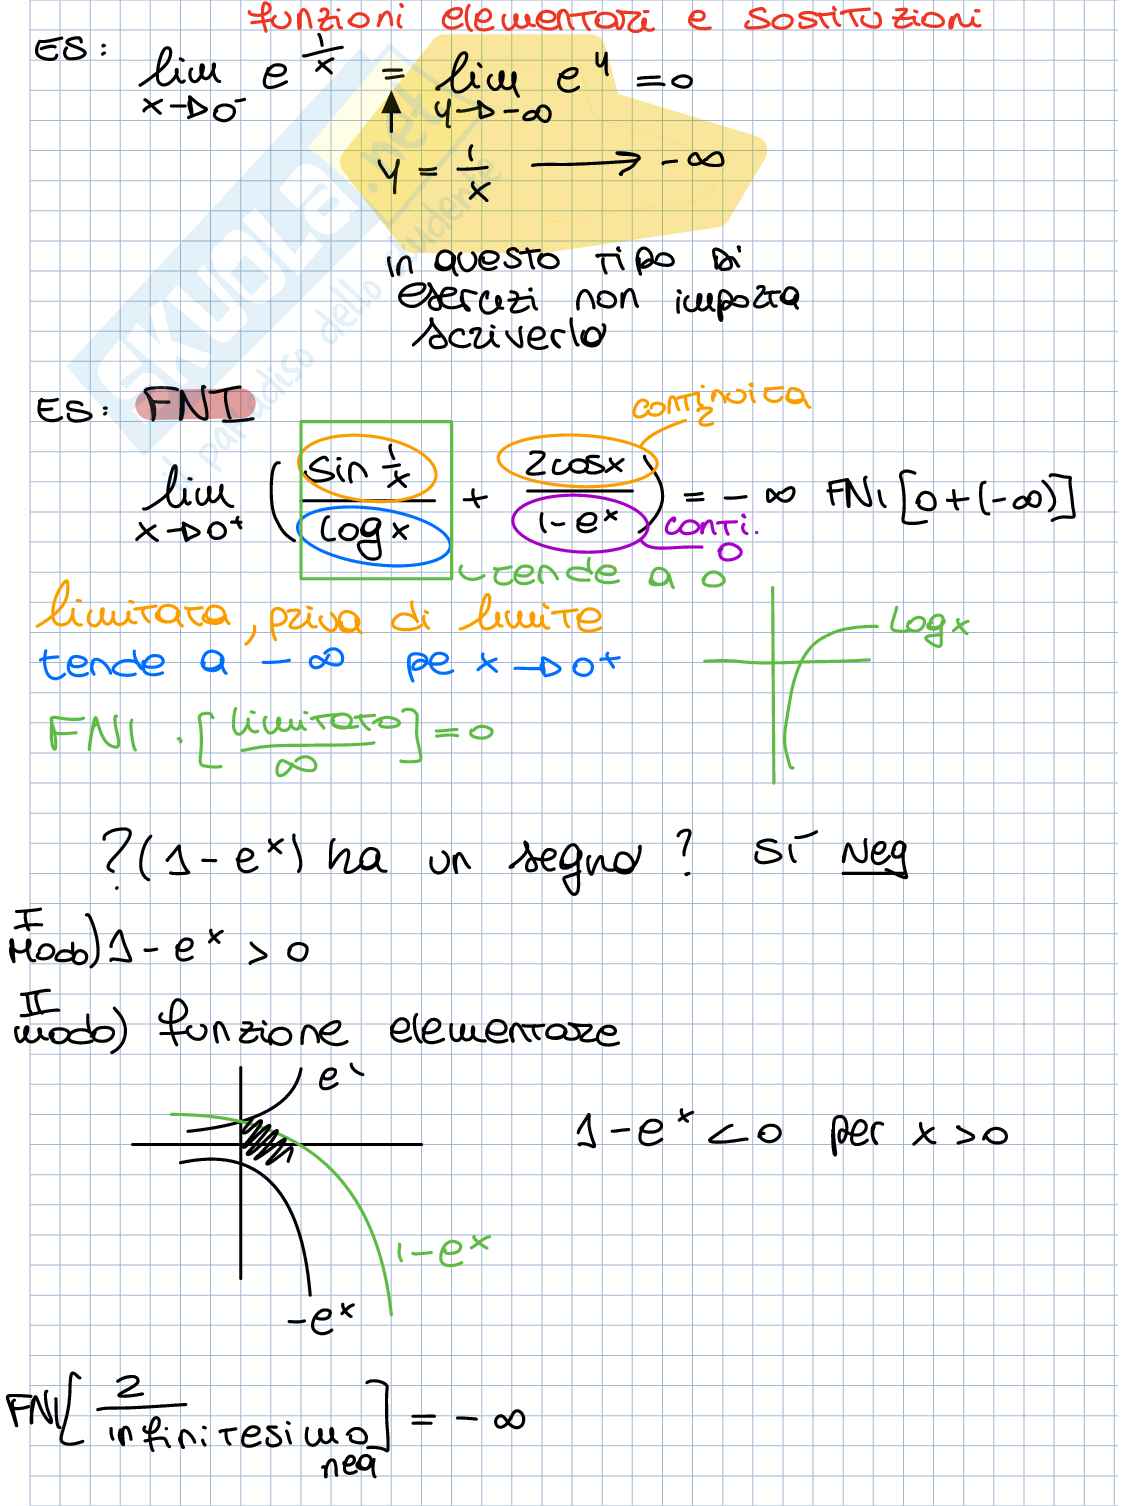 funzioni elementari e sostituzioni
ES: lim x→0⁻ e^(1/x) = lim y→-∞ e^y = 0
y = 1/x → -∞
in questo tipo di
esercizi non importa
scriverlo
ES: FNI
continuità
2
lim x→0⁺ ( sin 1/x / log x + 2cosx / 1-e^x ) = -∞ FNI [0+(-∞)]
conti.
0
tende a 0
limitata, priva di limite
log x
tende a -∞ pe x→0⁺
FNI · [limitato / ∞] = 0
? (1-e^x) ha un segno? sì neg
I modo) 1-e^x > 0
II modo) funzione elementare
e^x
1-e^x < 0 per x > 0
1-e^x
-e^x
FNI [2 / infinitesimo neg] = -∞
SKUOLA.net
il paradiso dello studente